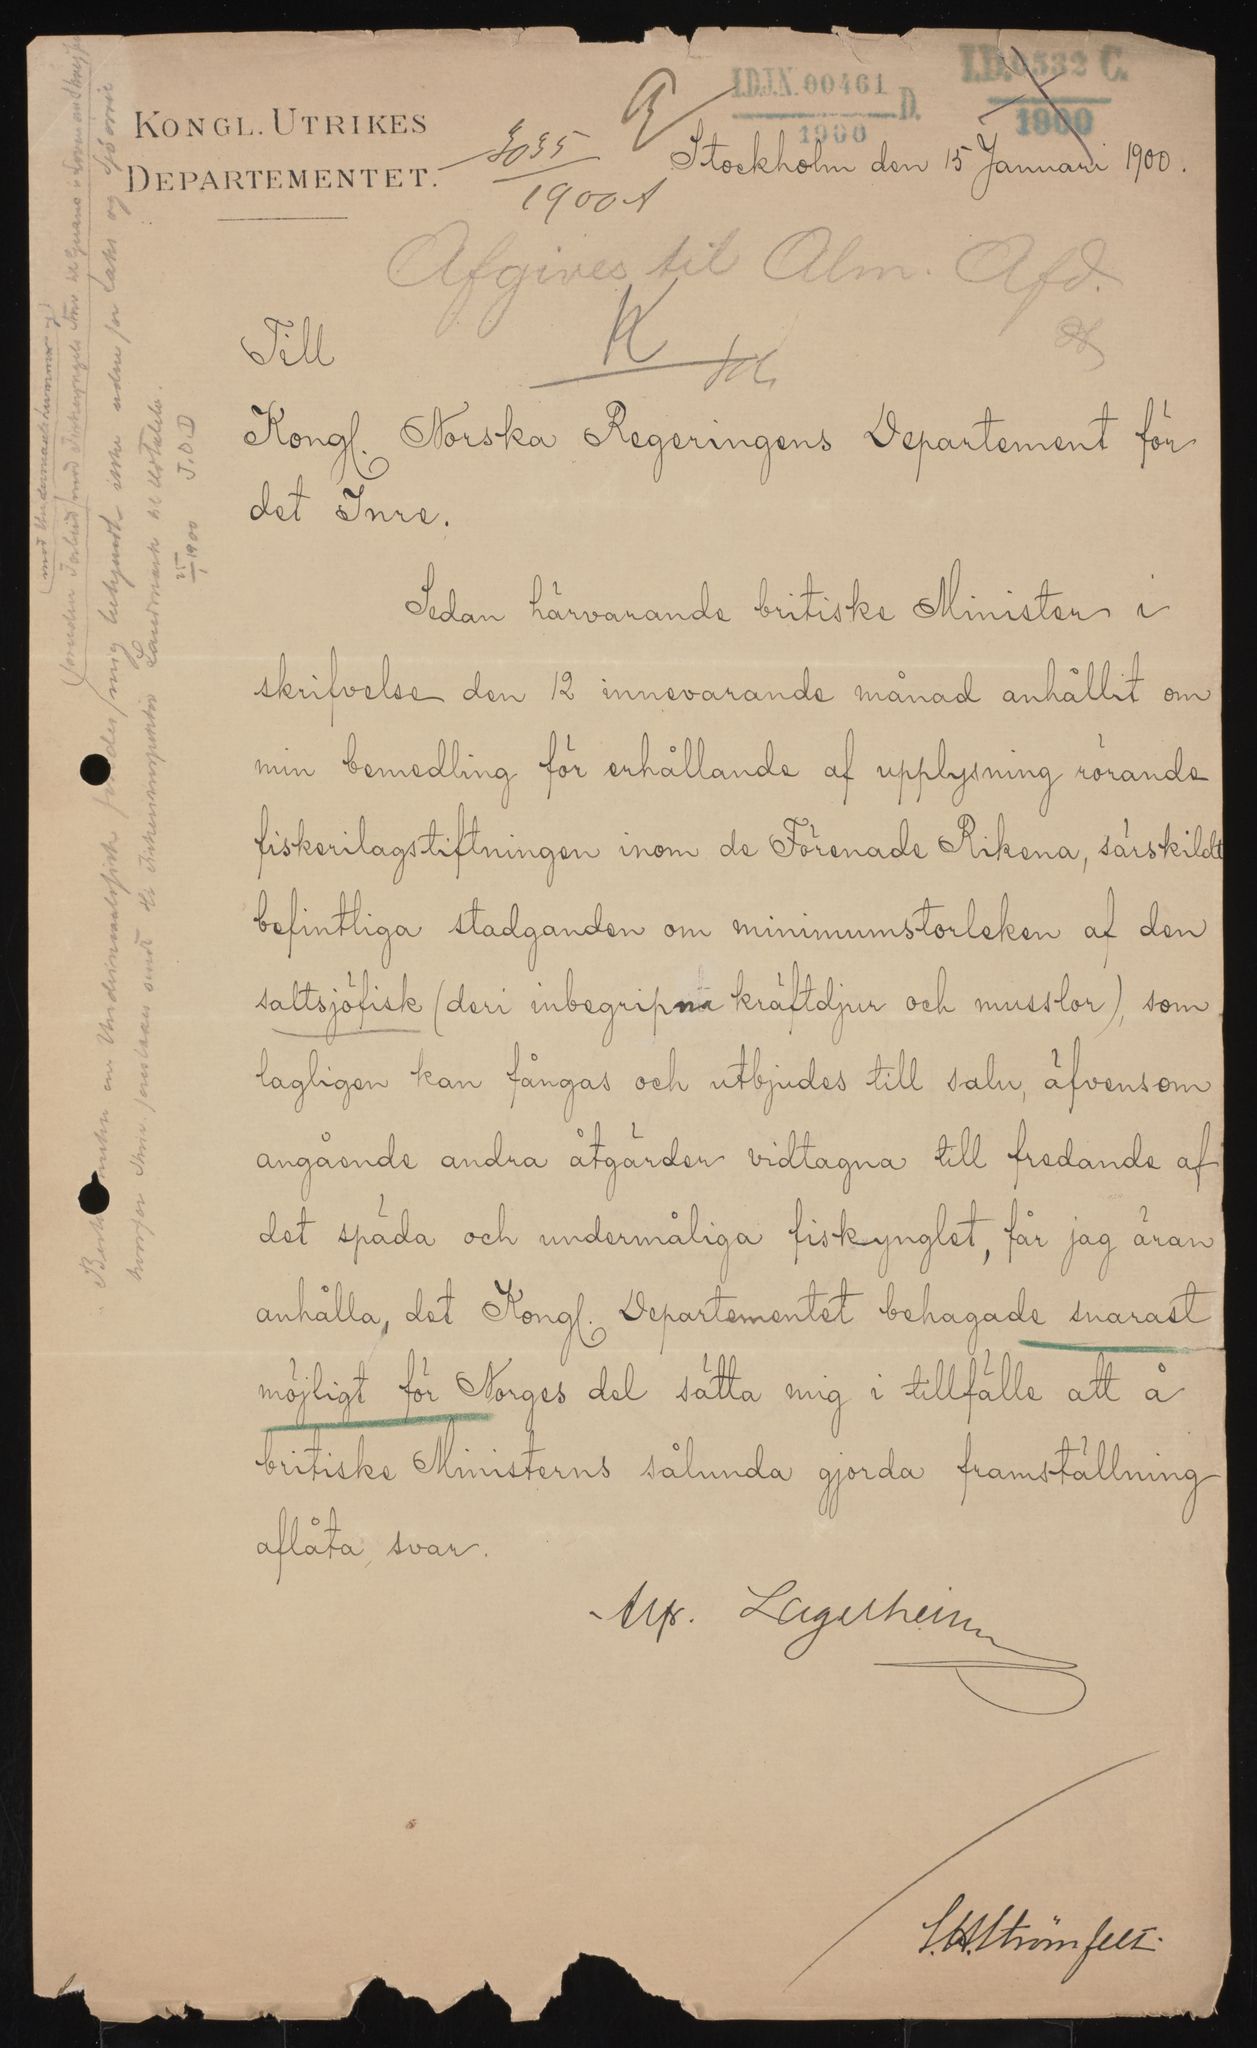 KONGL. UTRIKES
DEPARTEMENTET.
3035
1900 A
I.D.J.N. 00461 D.
1900
I.D. 0532 C.
1900
Stockholm den 15 Januari 1900.
Afgives til Alm. Afd.
K
Till
Kongl. Norska Regeringens Departement för
det Inre.
Sedan härvarande britiske Minister i
skrifvelse den 12 innevarande månad anhållit om
min bemedling för erhållande af upplysning rörande
fiskerilagstiftningen inom de Förenade Rikena, särskildt
befintliga stadganden om minimumstorleken af den
saltsjöfisk (deri inbegripna kräftdjur och musslor), som
lagligen kan fångas och utbjudes till salu, äfvensom
angående andra åtgärder vidtagna till fredande af
det späda och undermåliga fiskynglet, får jag äran
anhålla, det Kongl. Departementet behagade snarast
möjligt för Norges del sätta mig i tillfälle att å
britiske Ministerns sålunda gjorda framställning
aflåta svar.
Lagerheim
Strömfelt.
mod Undermaalshummer og
mig bekjendt ikke uden for laks og sjöørret
Fiskeriinspektör Landmark til Udtalelse.
25/1 1900 I.D.D